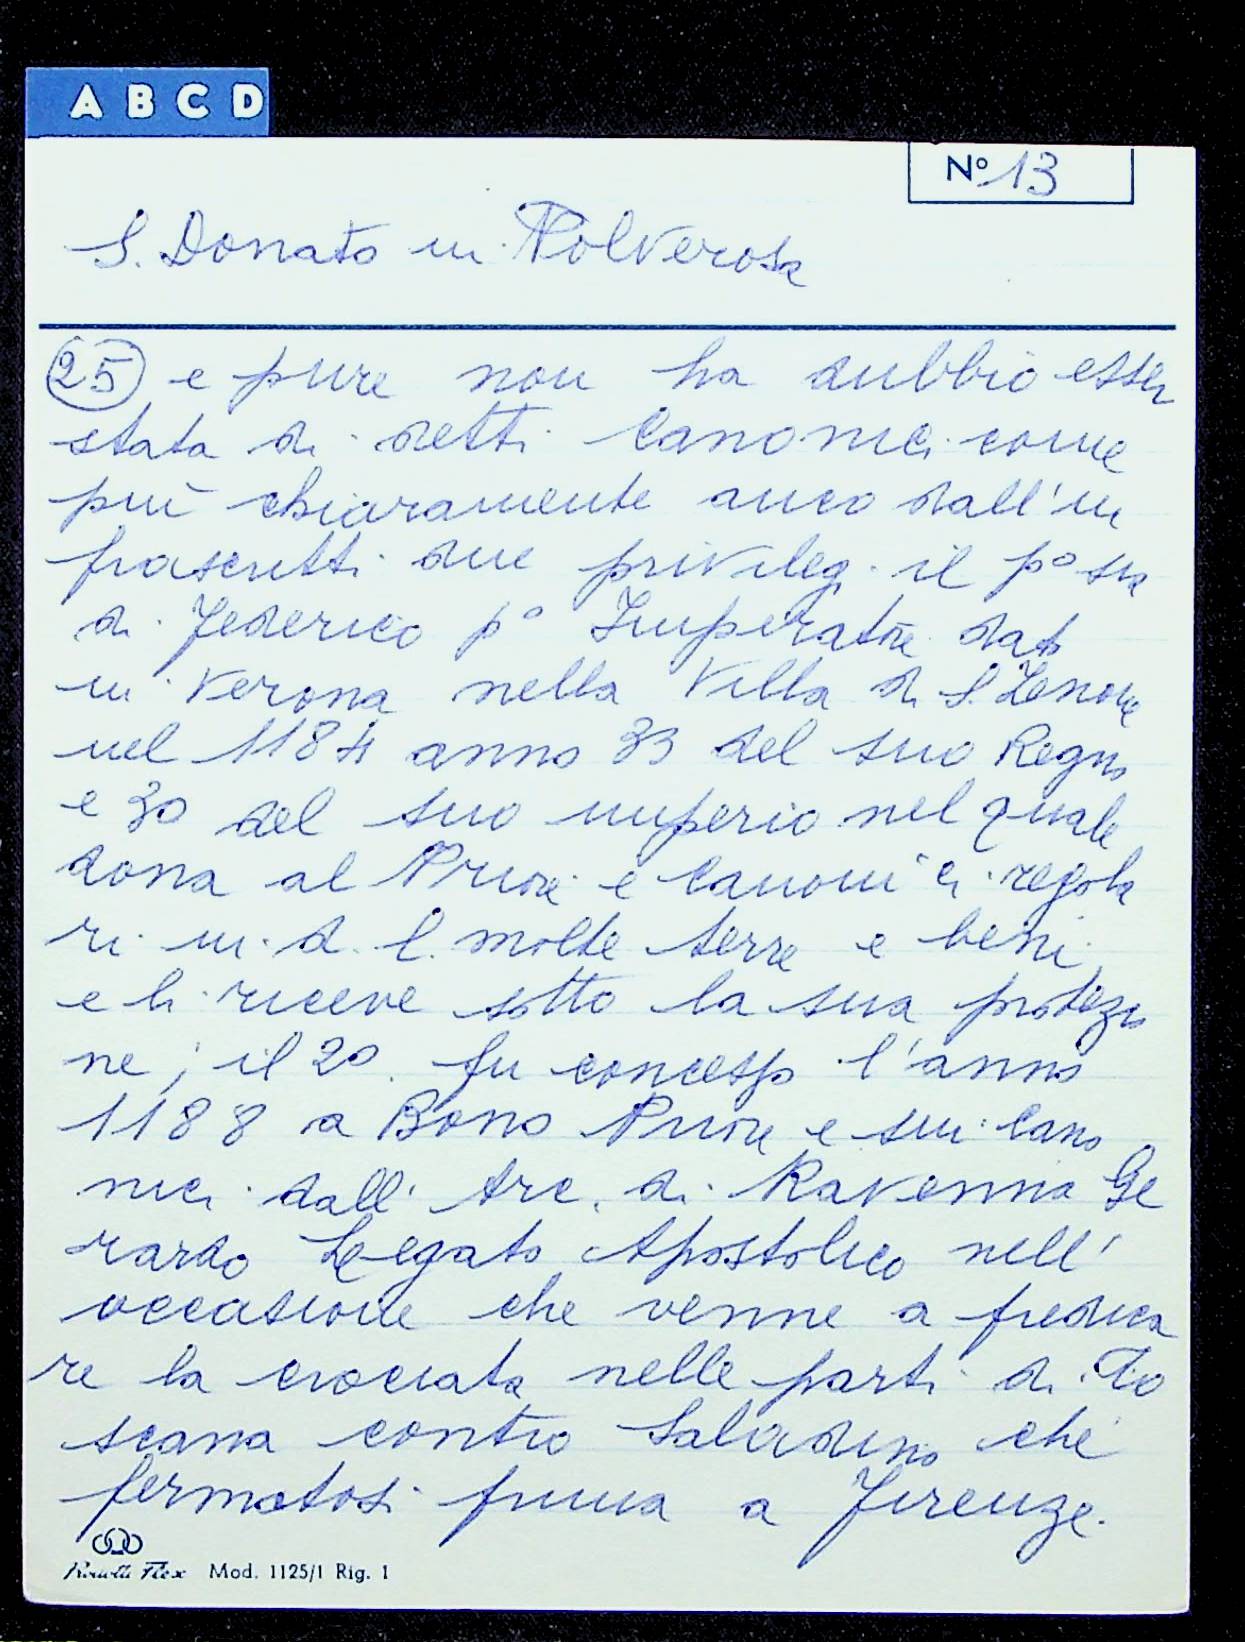 A B C D
Nº 13
S. Donato in Polverosa
25 e pure non ha dubbio esser
stata di detti Canonici come
più chiaramente anco dall'in
frascritti due privileg. il pº sia
di Federico pº Imperatore dato
in Verona nella Villa di S. Zenone
nel 1184 anno 33 del suo Regno
e 30 del suo imperio nel quale
dona al Priore e Canonici regola
ri in d. C. molte terre e beni
e li riceve sotto la sua protezio
ne; il 2º fu concesso l'anno
1188 a Bono Priore e sui Cano
nici dall' Arc. di Ravenna Ge
rardo Legato Apostolico nell'
occasione che venne a predica
re la crociata nelle parti di To
scana contro Saladino che
fermatosi prima a Firenze.
Mod. 1125/1 Rig. 1